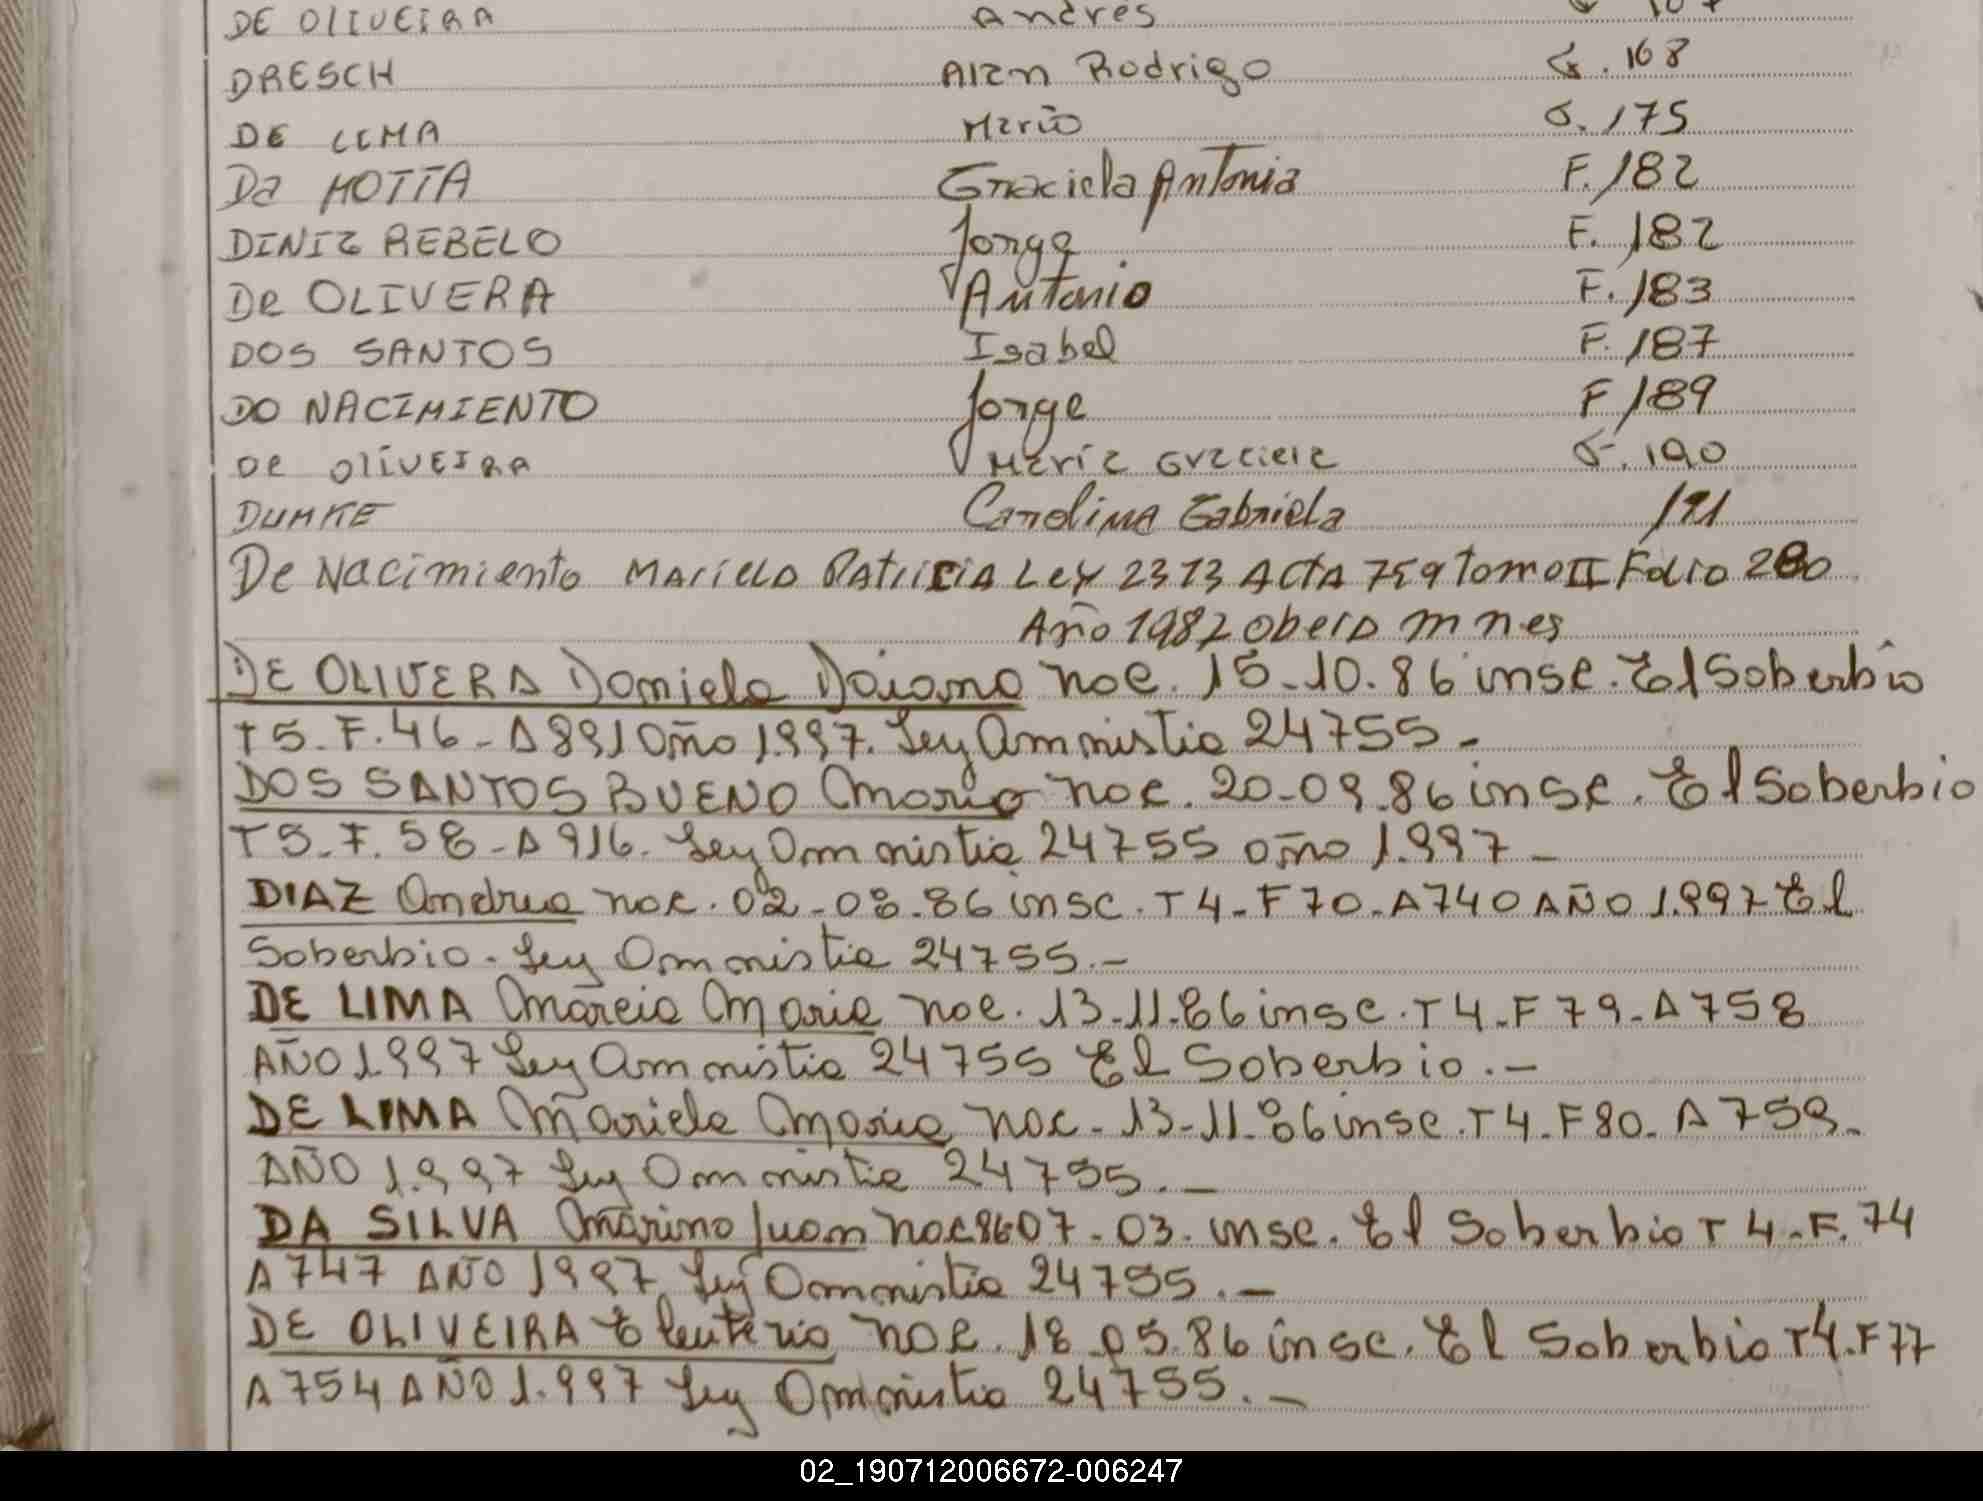 DE OLIVEIRA Andres
DRESCH Alan Rodrigo F. 168
DE LIMA Mario F. 175
Da MOTTA Graciela Antonia F. 182
DINIZ REBELO Jorge F. 182
De OLIVERA Antonio F. 183
DOS SANTOS Isabel F. 187
DO NACIMIENTO Jorge F 189
De OLIVEIRA Maria Graciela F. 190
DUMKE Carolina Gabriela 191
De Nacimiento Mariela Patricia Ley 2313 Acta 759 tomo II Folio 280
Año 1982 Obera mnes
DE OLIVERA Daniela Daiana nac. 15-10.86 insc. El Soberbio
T5-F.46-A891 año 1.997. Ley Ammistia 24755-
DOS SANTOS BUENO Mario nac. 20-09-86 insc. El Soberbio
T5-F.58-A916. Ley Ammistia 24755 año 1.997-
DIAZ Andrea nac. 02-08-86 insc. T4-F70-A740 AÑO 1.997 El
Soberbio. Ley Ammistia 24755.-
DE LIMA Marcia Maria nac. 13-11-86 insc. T4-F79-A758
AÑO 1.997 Ley Ammistia 24755 El Soberbio.-
DE LIMA Mariela Maria nac. 13-11-86 insc. T4-F80-A759-
AÑO 1.997 Ley Ammistia 24755.-
DA SILVA Marino Juan nac 8607-03. insc. El Soberbio T4-F.74
A747 AÑO 1997 Ley Ammistia 24755.-
DE OLIVEIRA Eleuterio nac. 18-05.86 insc. El Soberbio T4.F77
A754 AÑO 1.997 Ley Ammistia 24755.-
02_190712006672-006247